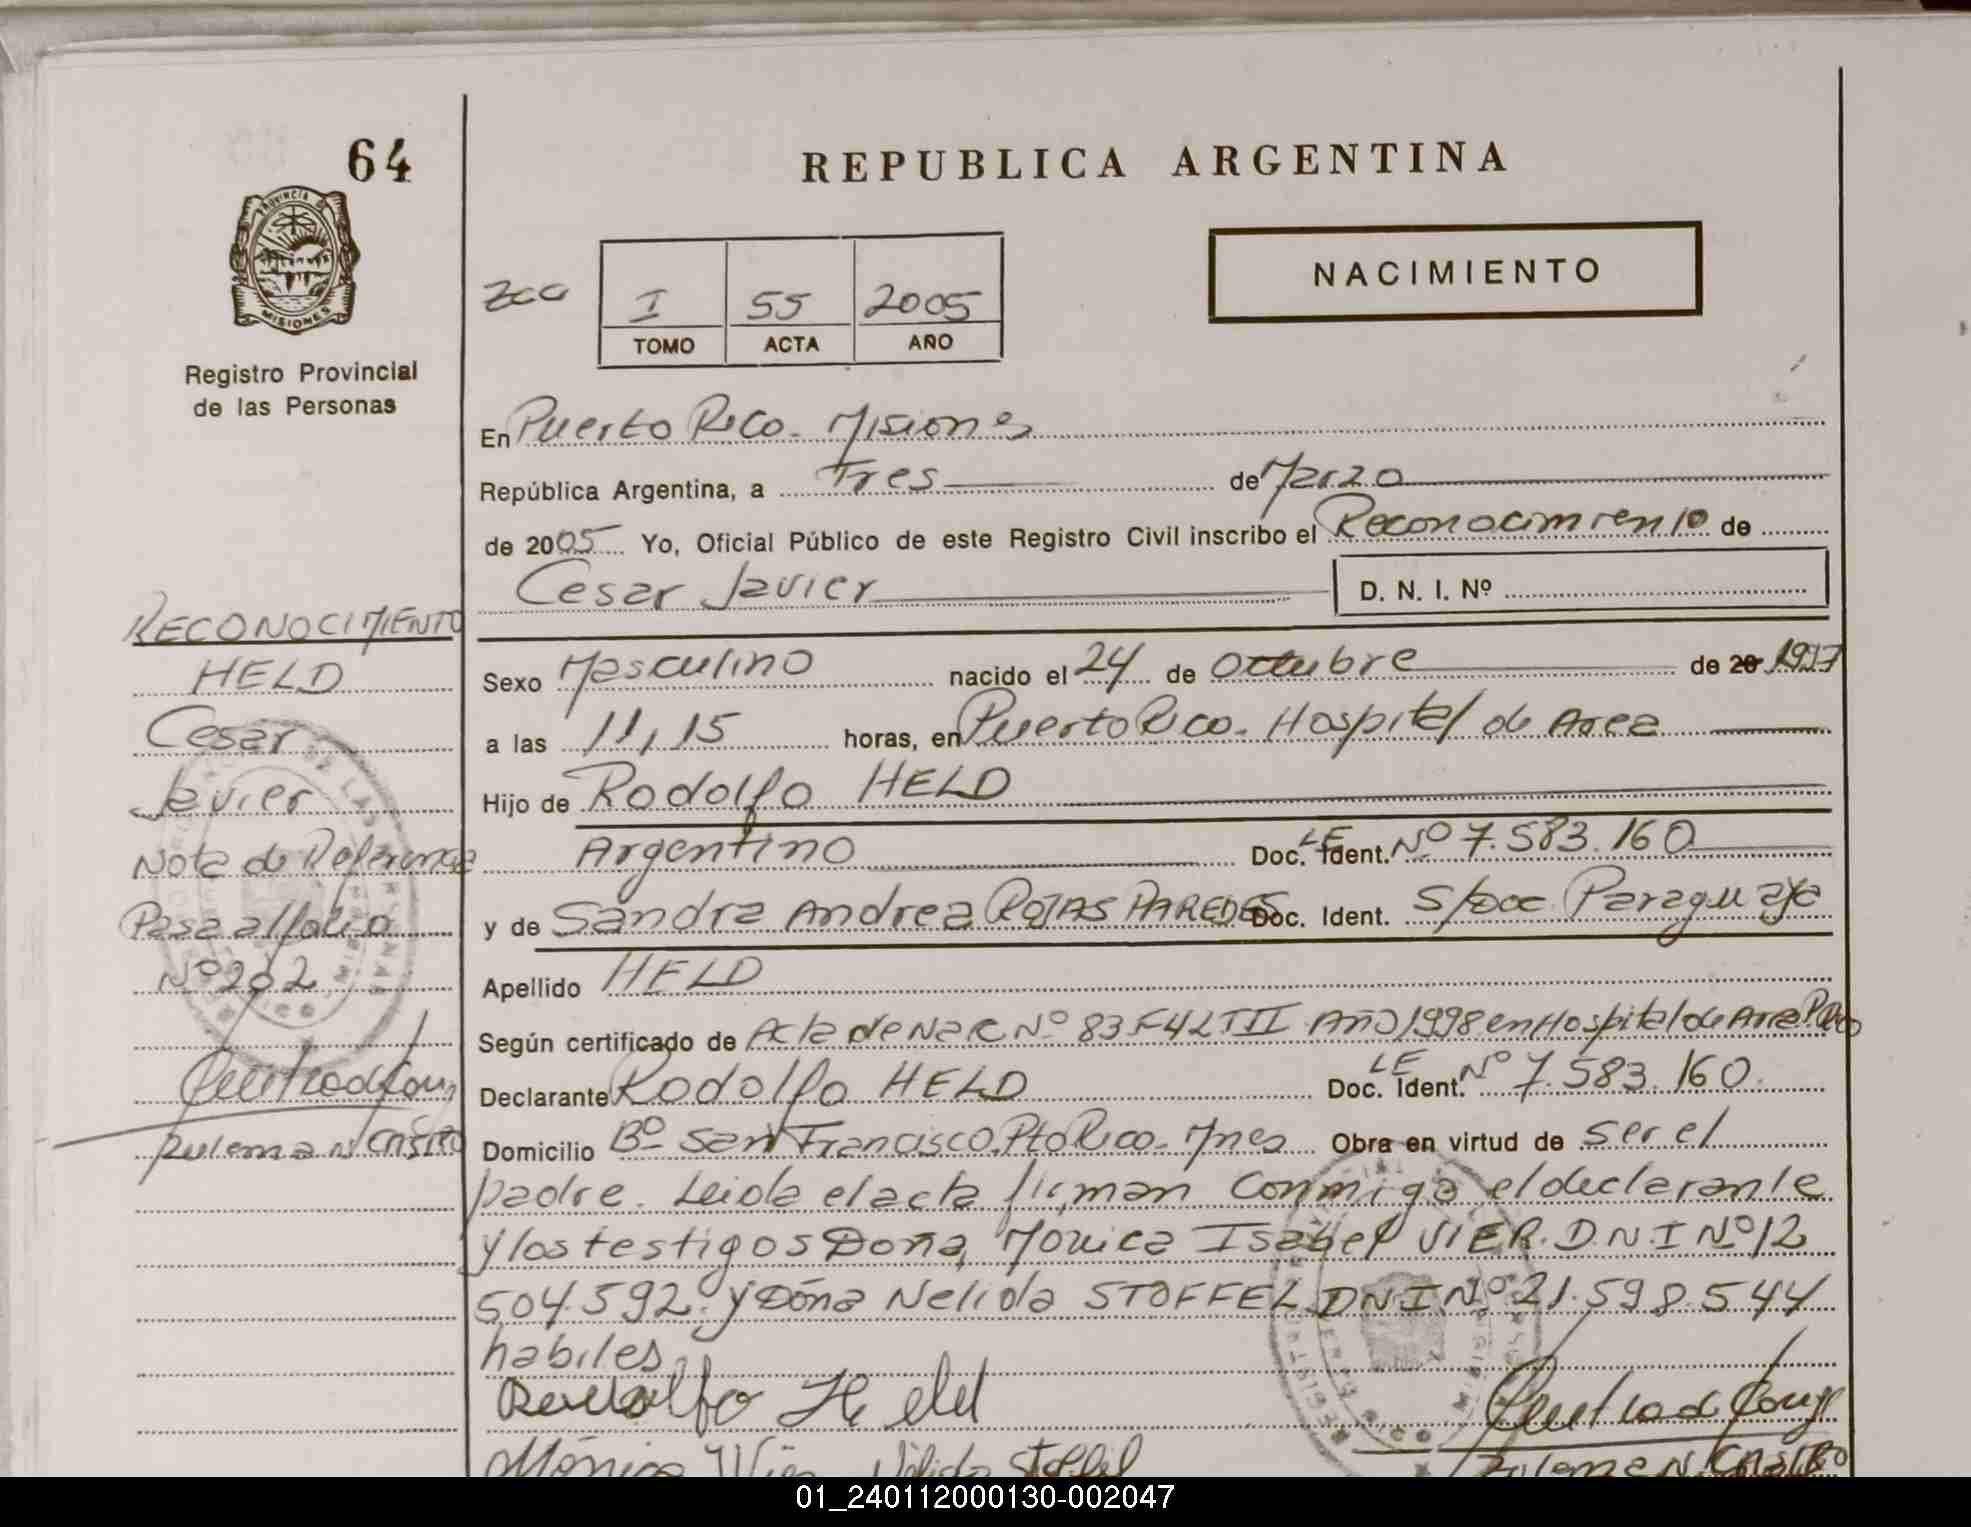 64
REPUBLICA ARGENTINA
PROVINCIA DE
MISIONES
NACIMIENTO
I 55 2005
TOMO ACTA AÑO
Registro Provincial
de las Personas
En Puerto Rico - Misiones
República Argentina, a Tres de Marzo
de 2005 Yo, Oficial Público de este Registro Civil inscribo el Reconocimiento de
Cesar Javier D. N. I. Nº
RECONOCIMIENTO
HELD
Cesar
Javier
Nota de Referencia
Pasa al folio
Nº 202
Zulema N CASTRO
Sexo Masculino nacido el 24 de Octubre de 20 1997
a las 11,15 horas, en Puerto Rico - Hospital de Area
Hijo de Rodolfo HELD
Argentino Doc. Ident. LE Nº 7.583.160
y de Sandra Andrea ROJAS PAREDES Doc. Ident. S/Doc Paraguaya
Apellido HELD
Según certificado de Acta de Nac Nº 83 F 42 T III Año 1998 en Hospital de Area
Declarante Rodolfo HELD Doc. Ident. LE Nº 7.583.160
Domicilio Bº San Francisco. Pto Rico - Mnes Obra en virtud de ser el
padre. Leida el acta firman conmigo el declarante
y los testigos Doña Monica Isabel VIER. D N I Nº 12
504.592. y Doña Nelida STOFFEL D N I Nº 21.598.544
habiles.
Rodolfo Held
Mónica Vier Nélida Stoffel
Zulema N. CASTRO
01_240112000130-002047